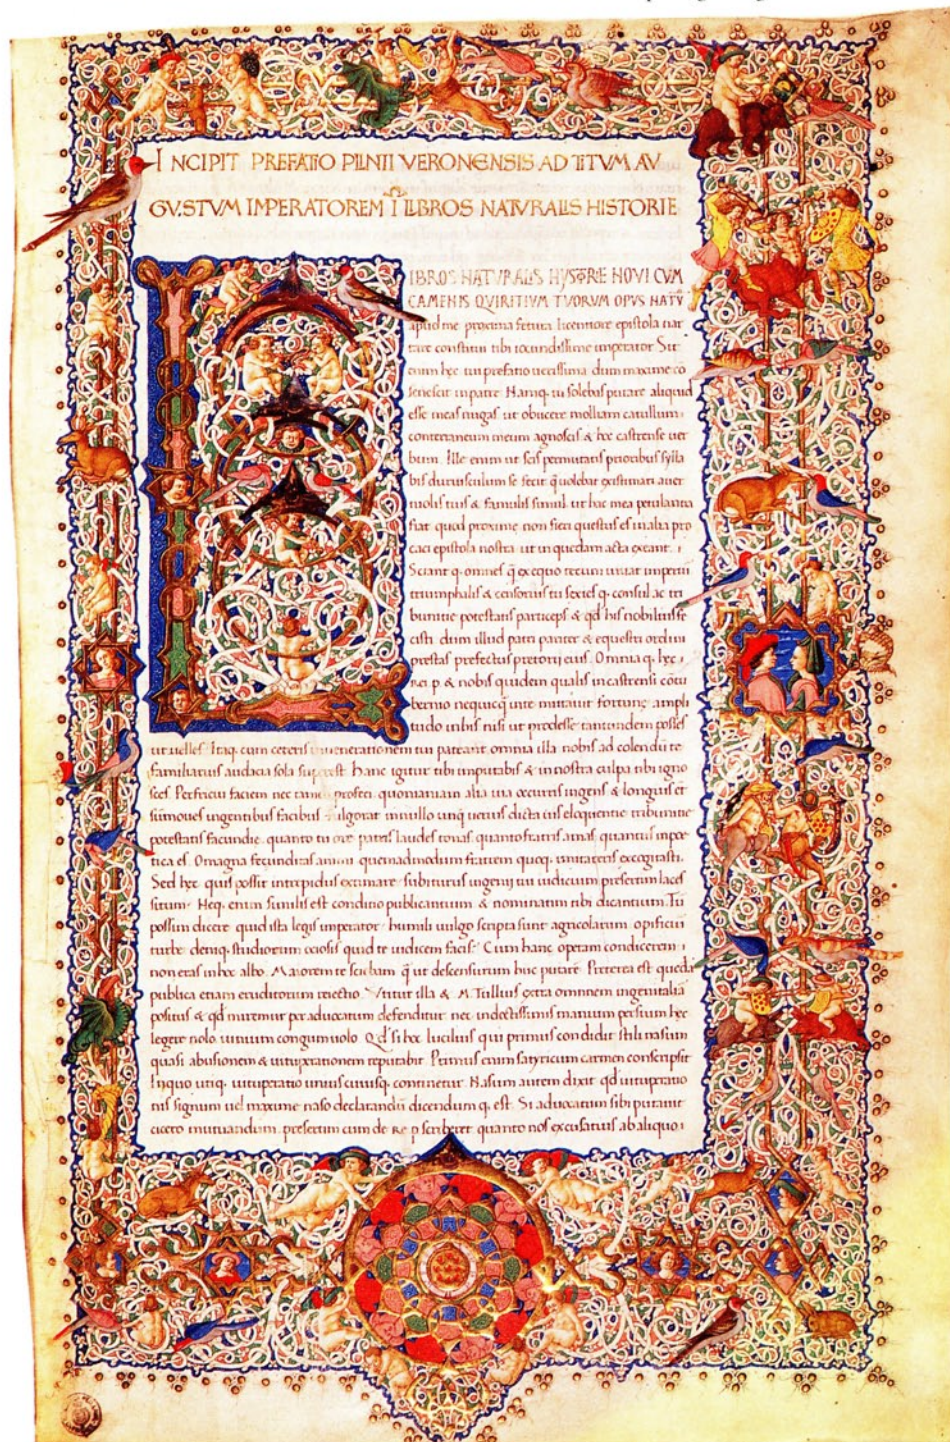 INCIPIT PREFATIO PLINII VERONENSIS AD TITVM AV
GVSTVM IMPERATOREM I LIBROS NATVRALIS HISTORIE
LIBROS NATVRALIS HYSTORIE NOVI CVM
CAMENIS QVIRITIVM TVORVM OPVS NATV
apud me proxima fetura licentiore epistola nar
rare constitui tibi iocundissime imperator Sit
enim hec tui prefatio uerissima dum maximo co
senescit in patre Namq. tu solebas putare aliquid
esse meas nugas ut obiicere molliam catullum
conterraneum meum agnoscis & hoc castrense uer
bum. Ille enim ut scis permutatis prioribus sylla
bis duriusculum se fecit q̄ uolebat existimari auer
niolis tuis & famulis simul ut hac mea petulantia
fiat quod proxime non fieri questus es in alia pro
caci epistola nostra ut in quedam acta exeant.
Sciant q. omnes q̄ ex equo tecum uiuat imperii
triumphalis & censorius tu sexies q. consul ac tri
bunitie potestatis particeps & qd his nobilius fe
cisti dum illud patri pariter & equestri ordini
prestas prefectus pretorij eius. Omnia q. hec
rei p. & nobis quidem qualis in castrensi cōtu
bernio nequicq̄ in te mutauit fortune ampli
tudo in his nisi ut prodesse tantundem posses
ut uelles. Itaq. cum ceteris in uenerationem tui pateant omnia illa nobis ad colendū te
familiarius audacia sola superest. Hanc igitur tibi imputabis & in nostra culpa tibi igno
sces. Perfricui faciem nec tamē profeci. quoniam alia uia occurris ingens & longius et
sumoues ingentibus facibus fulgorat in nullo unq̄ uerius dicta uis eloquentie tribunitie
potestatis facundie. quanto tu ore patris laudes tonas. quanto fratris amas. quantus in poe
tica es. O magna fecunditas animi quemadmodum fratrem quoq. imitareris excogitasti.
Sed hec quis possit intrepidus extimare. subiturus ingenij tui iudicium presertim laces
situm. Neq. enim similis est conditio publicantium & nominatim tibi dicantium. Tū
possum dicere quid ista legis imperator. humili uulgo scripta sunt agricolarum opificū
turbe deniq. studiorum ociosis quid te iudicem facis? Cum hanc operam condicerem
non eras in hoc albo. Maiorem te sciebam q̄ ut descensurum huc putarē. Preterea est quedā
publica etiam eruditorum reiectio. Vtitur illa & M. Tullius extra omnnem ingenii alia
positus & qd miremur per aduocatum defenditur nec indoctissimis manium persium hec
legere nolo uinium congum uolo. Qd si hoc lucilius qui primus condidit stili nasum
quasi abusionem & uituperationem reputabit. Primus enim satyricum carmen conscripsit
In quo utiq. uituperatio unius cuiusq. continetur. Nasum autem dixit qd uituperatio
nis signum uel maxime naso declarandū dicendum q. est. Si aduocatum sibi putauit
cicero mutuandum. presertim cum de Re p scriberet quanto nos excusatius ab aliquo